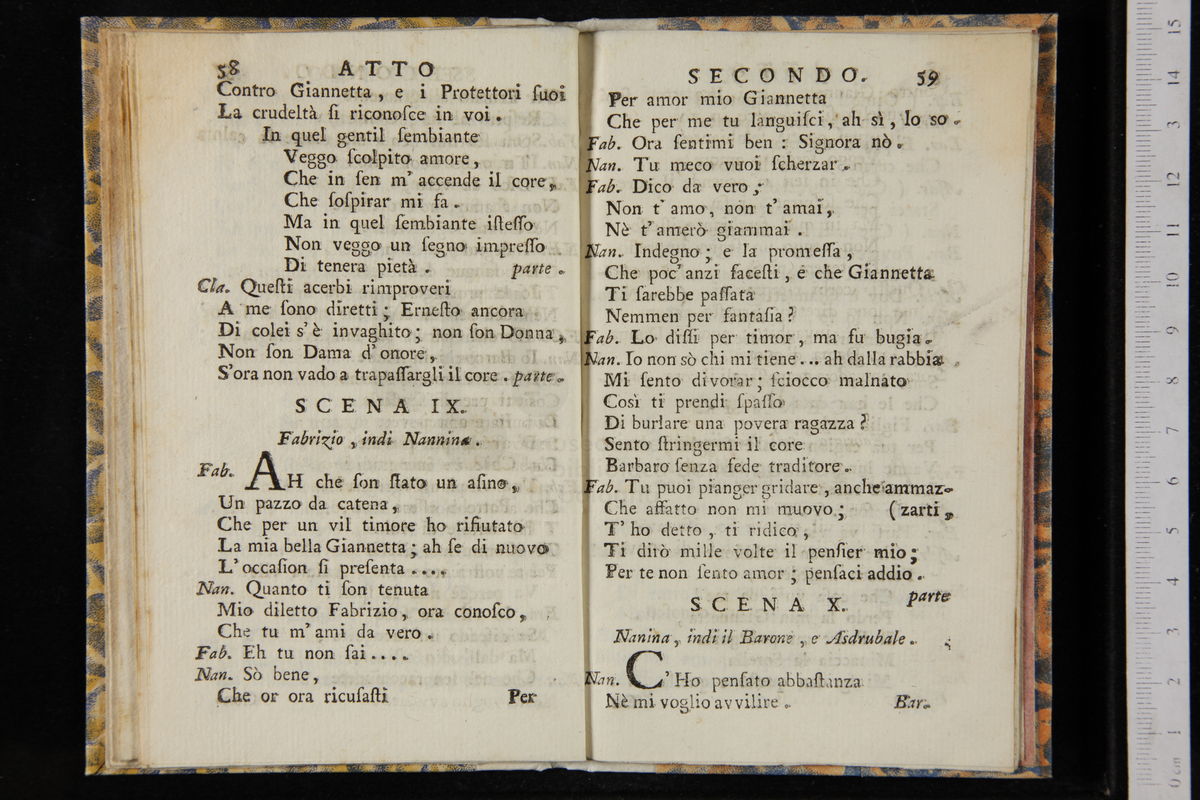 58 ATTO
Contro Giannetta, e i Protettori ſuoi
La crudeltà ſi riconoſce in voi.
In quel gentil ſembiante
Veggo ſcolpito amore,
Che in ſen m' accende il core,
Che ſoſpirar mi fa.
Ma in quel ſembiante iſteſſo
Non veggo un ſegno impreſſo
Di tenera pietà. parte.
Cla. Queſti acerbi rimproveri
A me ſono diretti; Erneſto ancora
Di colei s' è invaghito; non ſon Donna,
Non ſon Dama d' onore,
S'ora non vado a trapaſſargli il core. parte.
SCENA IX.
Fabrizio, indi Nannina.
Fab. AH che ſon ſtato un aſino,
Un pazzo da catena,
Che per un vil timore ho rifiutato
La mia bella Giannetta; ah ſe di nuovo
L' occaſion ſi preſenta....
Nan. Quanto ti ſon tenuta
Mio diletto Fabrizio, ora conoſco,
Che tu m' ami da vero.
Fab. Eh tu non ſai....
Nan. Sò bene,
Che or ora ricuſaſti
Per
SECONDO. 59
Per amor mio Giannetta
Che per me tu languiſci, ah sì, Io so.
Fab. Ora ſentimi ben: Signora nò.
Nan. Tu meco vuoi ſcherzar.
Fab. Dico da vero;
Non t' amo, non t' amai,
Nè t' amerò giammai.
Nan. Indegno; e la promeſſa,
Che poc' anzi faceſti, e che Giannetta
Ti ſarebbe paſſata
Nemmen per fantaſia?
Fab. Lo diſſi per timor, ma fu bugia.
Nan. Io non sò chi mi tiene... ah dalla rabbia
Mi ſento divorar; ſciocco malnato
Così ti prendi ſpaſſo
Di burlare una povera ragazza?
Sento ſtringermi il core
Barbaro ſenza fede traditore.
Fab. Tu puoi pianger gridare, anche ammaz-
Che affatto non mi muovo; (zarti,
T' ho detto, ti ridico,
Ti dirò mille volte il penſier mio;
Per te non ſento amor; penſaci addio.
parte
SCENA X.
Nanina, indi il Barone, e Asdrubale.
Nan. C' Ho penſato abbaſtanza
Nè mi voglio avvilire.
Bar.
0 cm 1 2 3 4 5 6 7 8 9 10 11 12 13 14 15